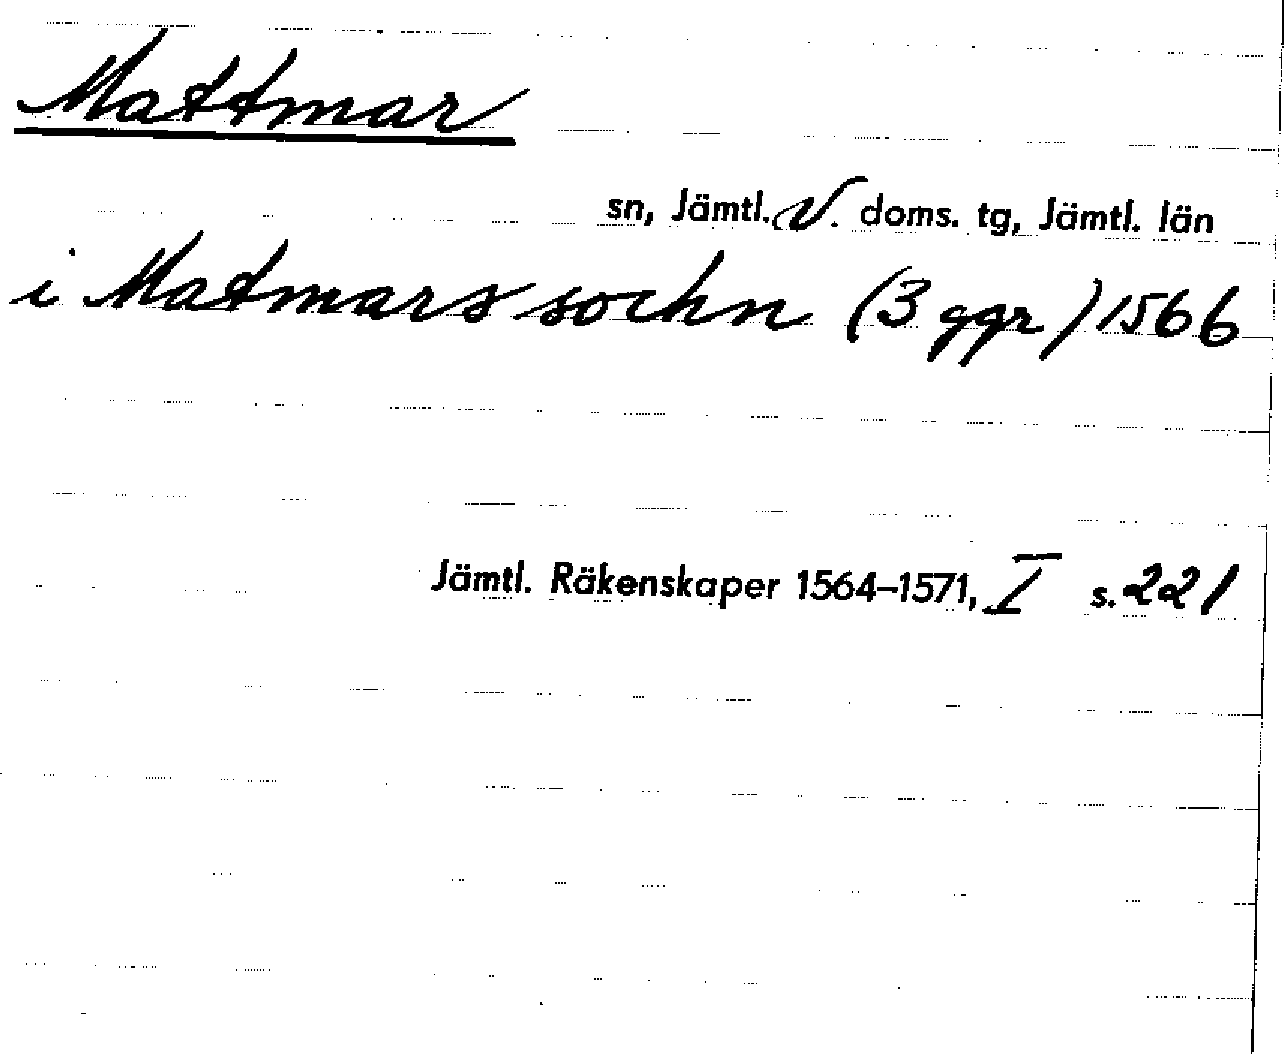 Mattmar
sn, Jämtl. V. doms. tg, Jämtl. län
i Matmars sochn (3 ggr) 1566
Jämtl. Räkenskaper 1564–1571, I s. 221